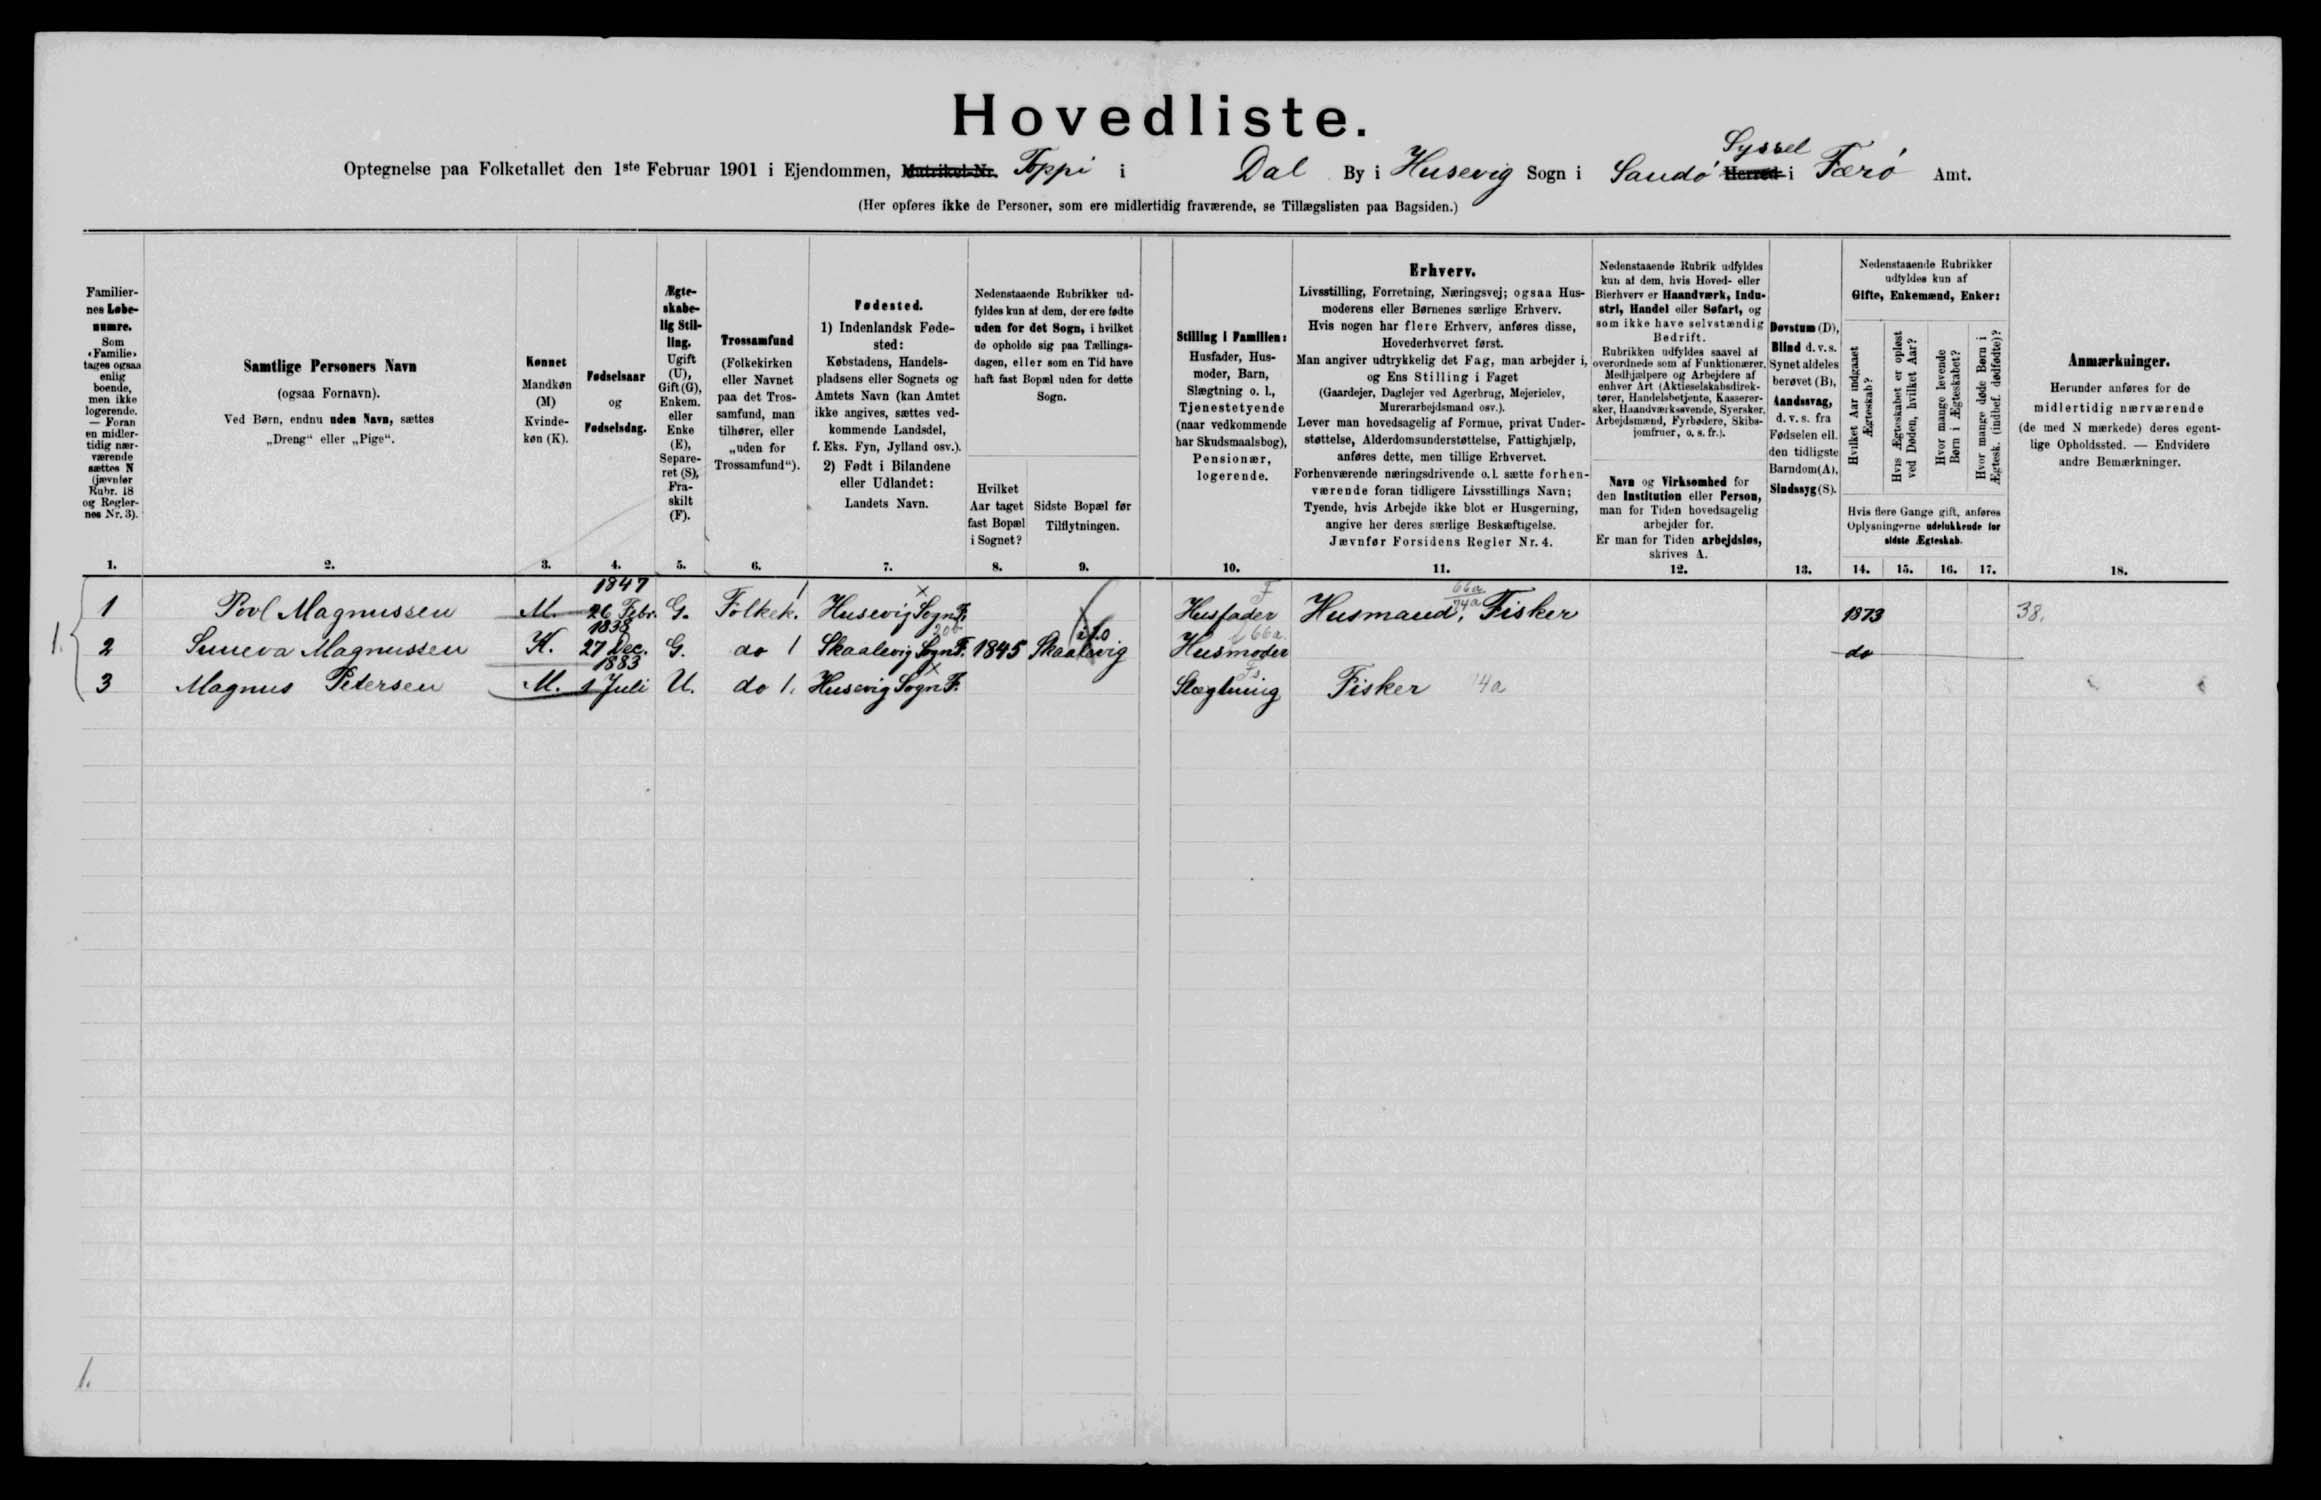 Hovedliste.
Syssel
Optegnelse paa Folketallet den 1ste Februar 1901 i Ejendommen, Matrikel-Nr. Toppi i Dal By i Husevig Sogn i Sandö Herred i Færö Amt.
(Her opføres ikke de Personer, som ere midlertidig fraværende, se Tillægslisten paa Bagsiden.)
Familier-
nes Løbe-
numre.
Som
«Familie»
tages ogsaa
enlig
boende,
men ikke
logerende.
— Foran
en midler-
tidig nær-
værende
sættes N
(jævnfør
Rubr. 18
og Regler-
nes Nr. 3).
1.
Samtlige Personers Navn
(ogsaa Fornavn).
Ved Børn, endnu uden Navn, sættes
„Dreng“ eller „Pige“.
2.
Kønnet
Mandkøn
(M)
Kvinde-
køn (K).
3.
Fødselsaar
og
Fødselsdag.
4.
Ægte-
skabe-
lig Stil-
ling.
Ugift
(U),
Gift (G),
Enkem.
eller
Enke
(E),
Separe-
ret (S),
Fra-
skilt
(F).
5.
Trossamfund
(Folkekirken
eller Navnet
paa det Tros-
samfund, man
tilhører, eller
„uden for
Trossamfund“).
6.
Fødested.
1) Indenlandsk Føde-
sted:
Købstadens, Handels-
pladsens eller Sognets og
Amtets Navn (kan Amtet
ikke angives, sættes ved-
kommende Landsdel,
f. Eks. Fyn, Jylland osv.).
2) Født i Bilandene
eller Udlandet:
Landets Navn.
7.
Nedenstaaende Rubrikker ud-
fyldes kun af dem, der ere fødte
uden for det Sogn, i hvilket
de opholde sig paa Tællings-
dagen, eller som en Tid have
haft fast Bopæl uden for dette
Sogn.
Hvilket
Aar taget
fast Bopæl
i Sognet?
8.
Sidste Bopæl før
Tilflytningen.
9.
Stilling i Familien:
Husfader, Hus-
moder, Barn,
Slægtning o. l.,
Tjenestetyende
(naar vedkommende
har Skudsmaalsbog),
Pensionær,
logerende.
10.
Erhverv.
Livsstilling, Forretning, Næringsvej; ogsaa Hus-
moderens eller Børnenes særlige Erhverv.
Hvis nogen har flere Erhverv, anføres disse,
Hovederhvervet først.
Man angiver udtrykkelig det Fag, man arbejder i,
og Ens Stilling i Faget
(Gaardejer, Daglejer ved Agerbrug, Mejerielev,
Murerarbejdsmand osv.).
Lever man hovedsagelig af Formue, privat Under-
støttelse, Alderdomsunderstøttelse, Fattighjælp,
anføres dette, men tillige Erhvervet.
Forhenværende næringsdrivende o. l. sætte forhen-
værende foran tidligere Livsstillings Navn;
Tyende, hvis Arbejde ikke blot er Husgerning,
angive her deres særlige Beskæftigelse.
Jævnfør Forsidens Regler Nr. 4.
11.
Nedenstaaende Rubrik udfyldes
kun af dem, hvis Hoved- eller
Bierhverv er Haandværk, Indu-
stri, Handel eller Søfart, og
som ikke have selvstændig
Bedrift.
Rubrikken udfyldes saavel af
overordnede som af Funktionærer,
Medhjælpere og Arbejdere af
enhver Art (Aktieselskabsdirek-
tører, Handelsbetjente, Kasserer-
sker, Haandværkssvende, Syersker,
Arbejdsmænd, Fyrbødere, Skibs-
jomfruer, o. s. fr.).
Navn og Virksomhed for
den Institution eller Person,
man for Tiden hovedsagelig
arbejder for.
Er man for Tiden arbejdsløs,
skrives A.
12.
Døvstum (D),
Blind d. v. s.
Synet aldeles
berøvet (B),
Aandssvag,
d. v. s. fra
Fødselen ell.
den tidligste
Barndom (A),
Sindssyg (S).
13.
Nedenstaaende Rubrikker
udfyldes kun af
Gifte, Enkemænd, Enker:
Hvilket Aar indgaaet
Ægteskab?
Hvis Ægteskabet er opløst
ved Døden, hvilket Aar?
Hvor mange levende
Børn i Ægteskabet?
Hvor mange døde Børn i
Ægtesk. (indbef. dødfødte)?
Hvis flere Gange gift, anføres
Oplysningerne udelukkende for
sidste Ægteskab.
14. 15. 16. 17.
Anmærkninger.
Herunder anføres for de
midlertidig nærværende
(de med N mærkede) deres egent-
lige Opholdssted. — Endvidere
andre Bemærkninger.
18.
1 Povl Magnussen M. 1847 26 Febr. G. Folkek. 1 Husevig Sogn F. Husfader F Husmand, Fisker 66a 74a 1873 38.
1. 2 Suneva Magnussen K. 1838 27 Dec. G. do 1 Skaalevig Sogn F. 1845 Skaalevig Husmoder 66a. do
3 Magnus Petersen M. 1883 1 Juli U. do 1. Husevig Sogn F. Slægtning Fisker 74a
1.